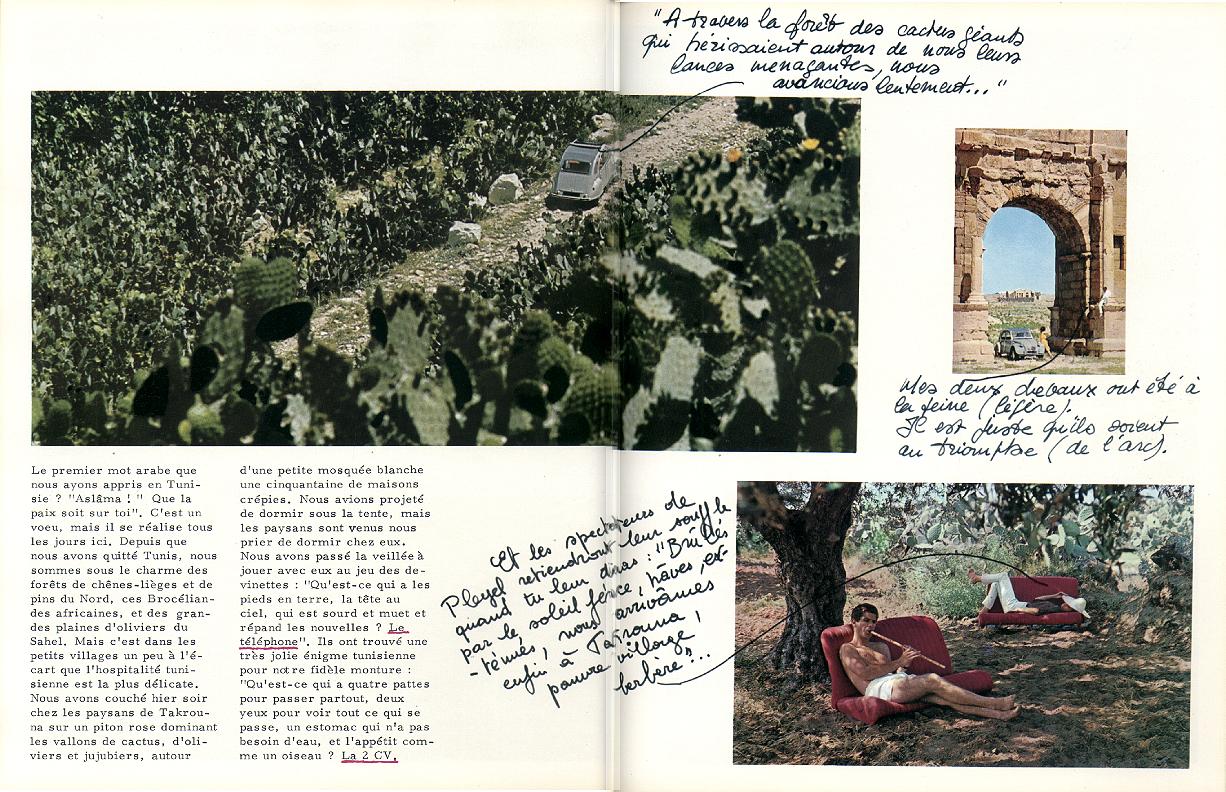 "A travers la forêt des cactus géants
qui hérissaient autour de nous leurs
lances menaçantes, nous
avancions lentement..."
Mes deux chevaux ont été à
la peine (légère).
Il est juste qu'ils soient
au triomphe (de l'arc).
Le premier mot arabe que
nous ayons appris en Tuni-
sie ? "Aslâma ! " Que la
paix soit sur toi". C'est un
voeu, mais il se réalise tous
les jours ici. Depuis que
nous avons quitté Tunis, nous
sommes sous le charme des
forêts de chênes-lièges et de
pins du Nord, ces Brocélian-
des africaines, et des gran-
des plaines d'oliviers du
Sahel. Mais c'est dans les
petits villages un peu à l'é-
cart que l'hospitalité tuni-
sienne est la plus délicate.
Nous avons couché hier soir
chez les paysans de Takrou-
na sur un piton rose dominant
les vallons de cactus, d'oli-
viers et jujubiers, autour
d'une petite mosquée blanche
une cinquantaine de maisons
crépies. Nous avions projeté
de dormir sous la tente, mais
les paysans sont venus nous
prier de dormir chez eux.
Nous avons passé la veillée à
jouer avec eux au jeu des de-
vinettes : "Qu'est-ce qui a les
pieds en terre, la tête au
ciel, qui est sourd et muet et
répand les nouvelles ? Le
téléphone". Ils ont trouvé une
très jolie énigme tunisienne
pour notre fidèle monture :
"Qu'est-ce qui a quatre pattes
pour passer partout, deux
yeux pour voir tout ce qui se
passe, un estomac qui n'a pas
besoin d'eau, et l'appétit com-
me un oiseau ? La 2 CV.
Et les spectateurs de
Pleyel retiendront leur souffle
quand tu leur diras : "Brûlés
par le soleil féroce, hâves, ex-
-ténués, nous arrivâmes
enfin à Takrouna,
pauvre village
berbère"...